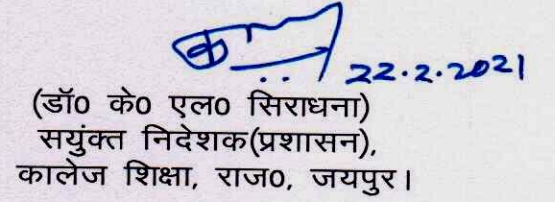 22.2.2021
(डॉ0 के0 एल0 सिराधना)
सयुंक्त निदेशक(प्रशासन),
कालेज शिक्षा, राज0, जयपुर।